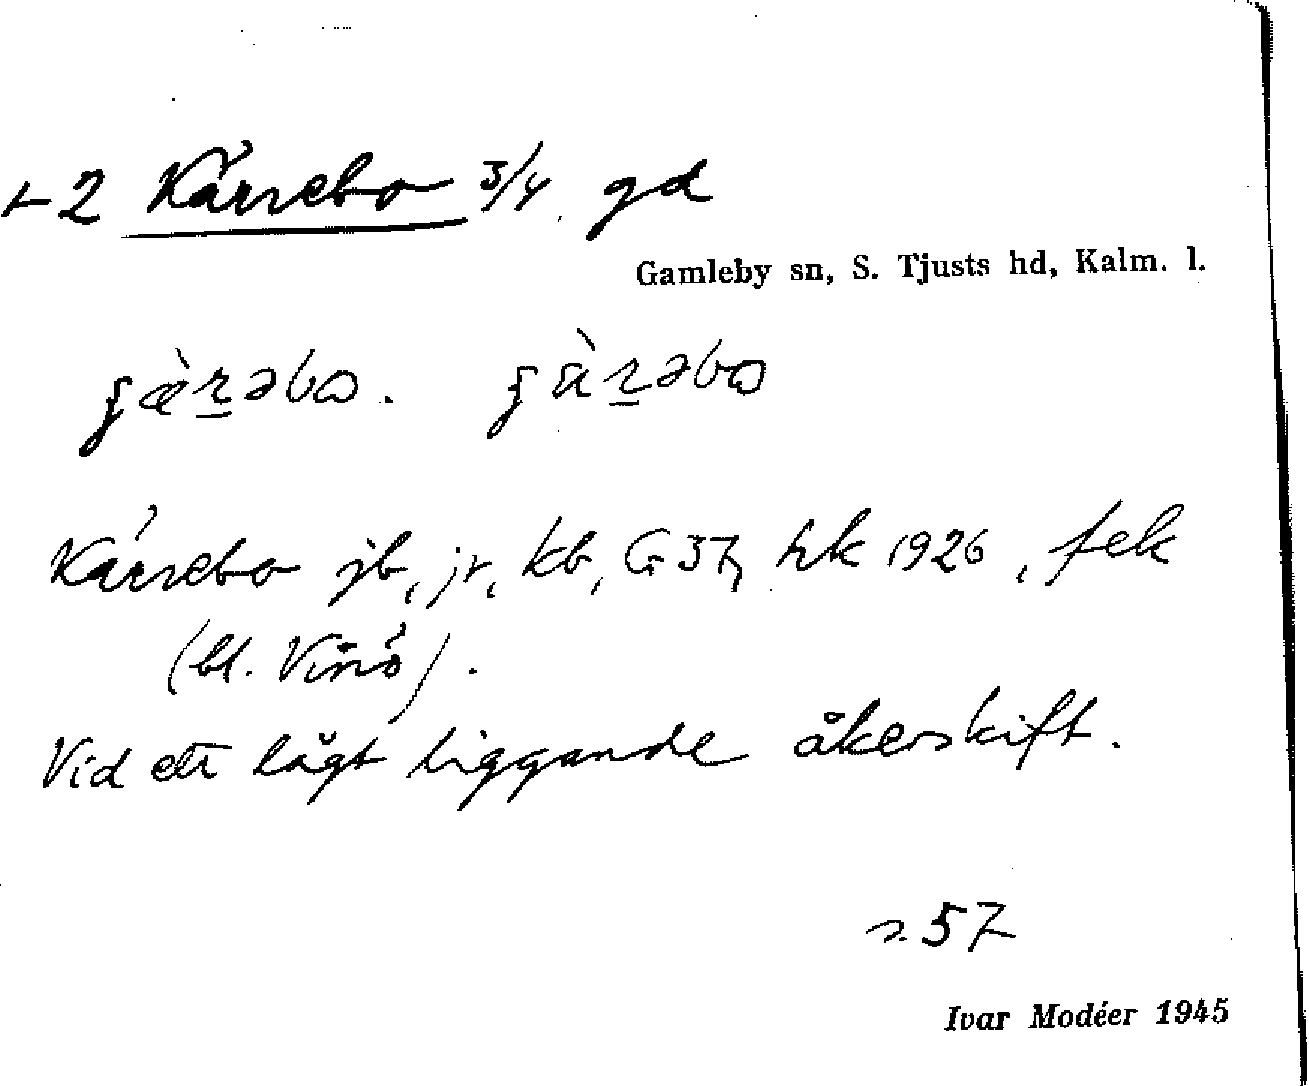 +2 Kärrebo 3/4 gd
Gamleby sn, S. Tjusts hd, Kalm. l.
Kärrebo jb, jr, kb, G 37, hk 1926, fek
(bl. Vinö).
Vid ett lågt liggande åkerskift.
s. 57
Ivar Modéer 1945